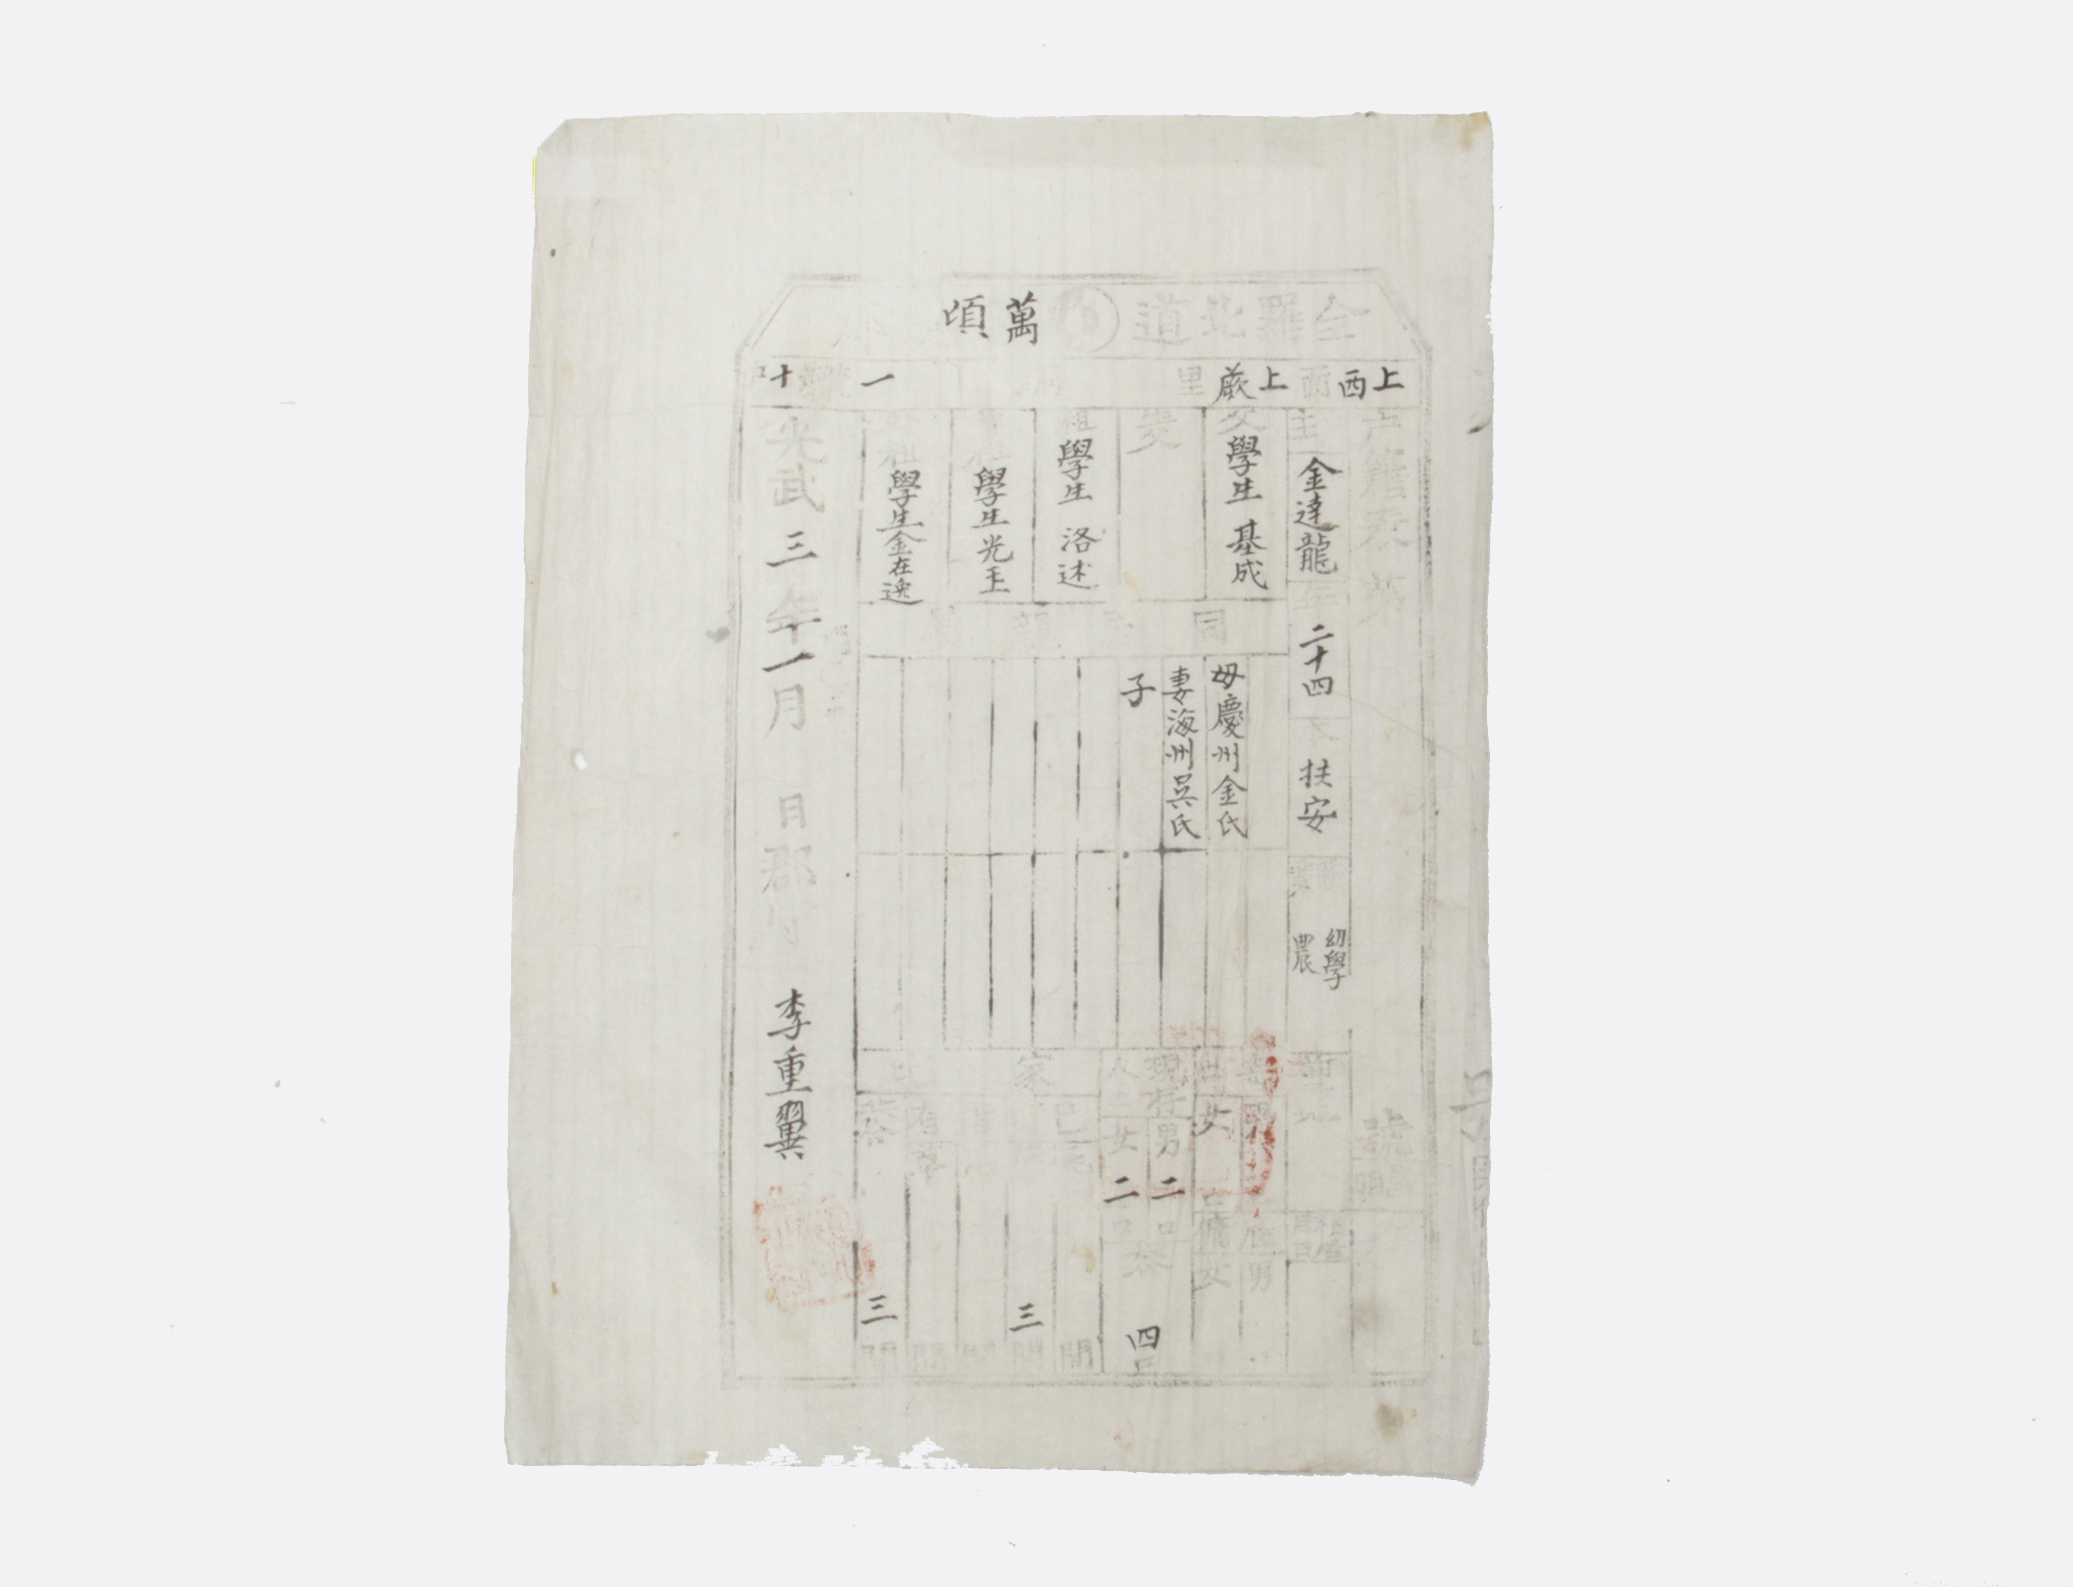 全羅北道 萬頃
上西面 上蕨里 一 十
戶籍表 第 號
主 金達龍 年 二十四 本 扶安 職業 幼學 農
父 學生 基成
祖 學生 洛述
曾祖 學生 光玉
外祖 學生 金在逸
同居親屬
母慶州金氏
妻海州吳氏
子
寄口 男 女
雇傭 男 女
現存人口 男 二口 女 二口
共 四口
家
已有 間
三間
間
有草 間
共合 三間
光武三年一月 日 郡守 李重翼